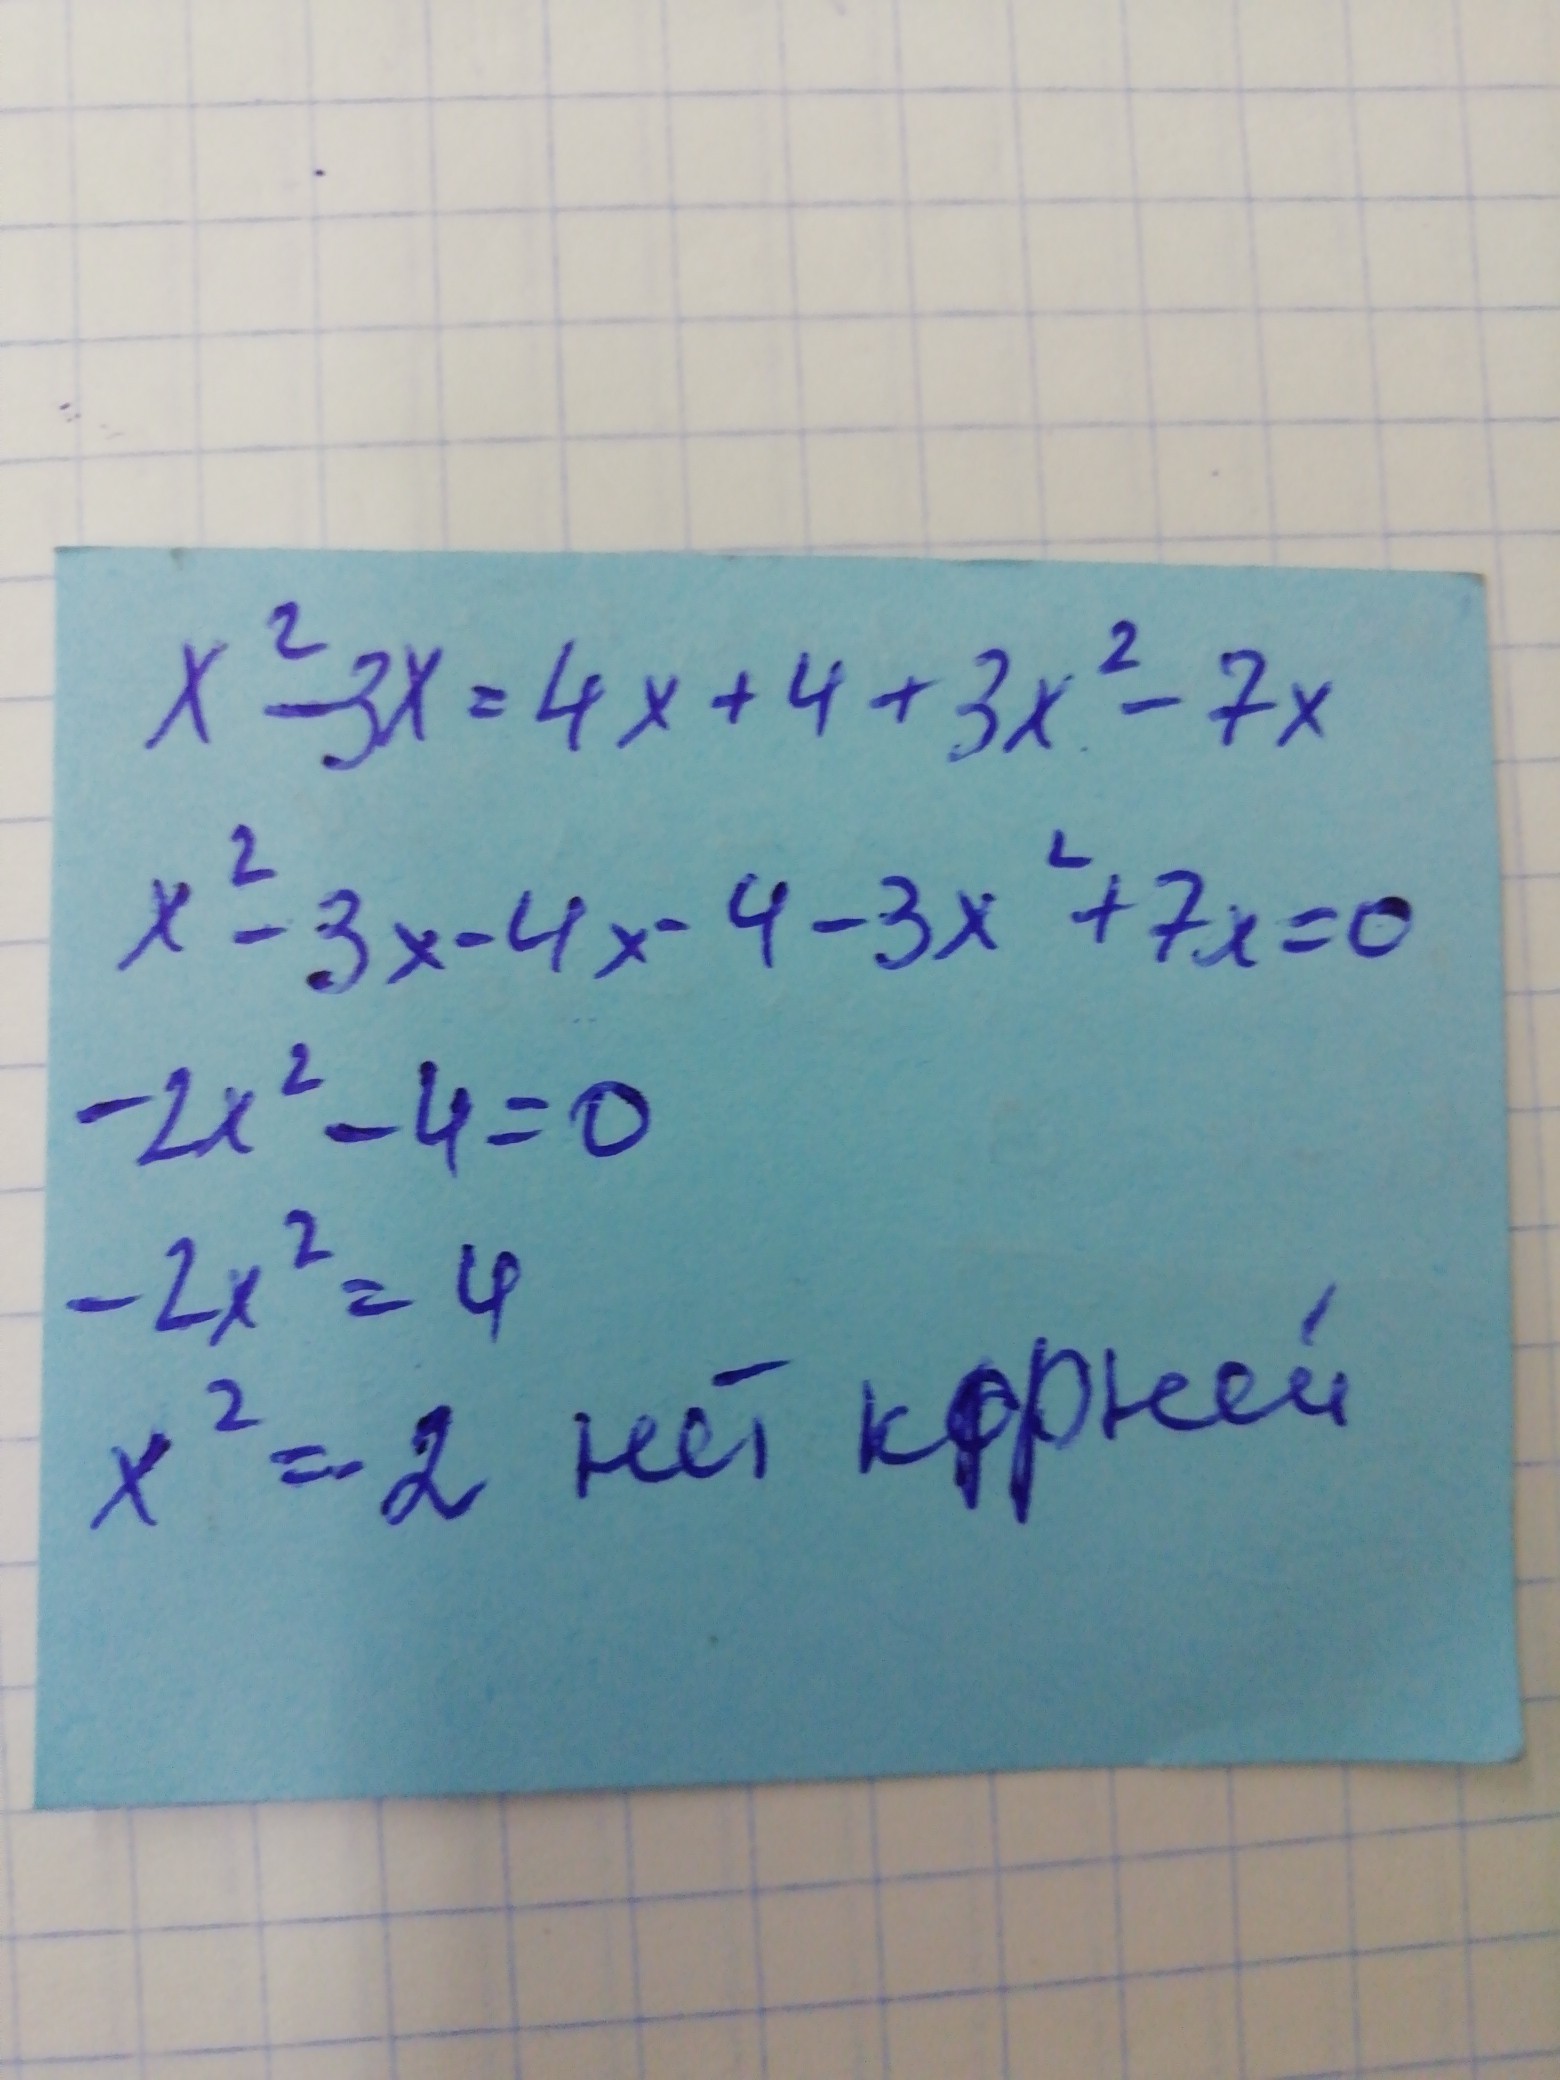 x² - 3x = 4x + 4 + 3x² - 7x
x² - 3x - 4x - 4 - 3x² + 7x = 0
-2x² - 4 = 0
-2x² = 4
x² = -2 нет корней